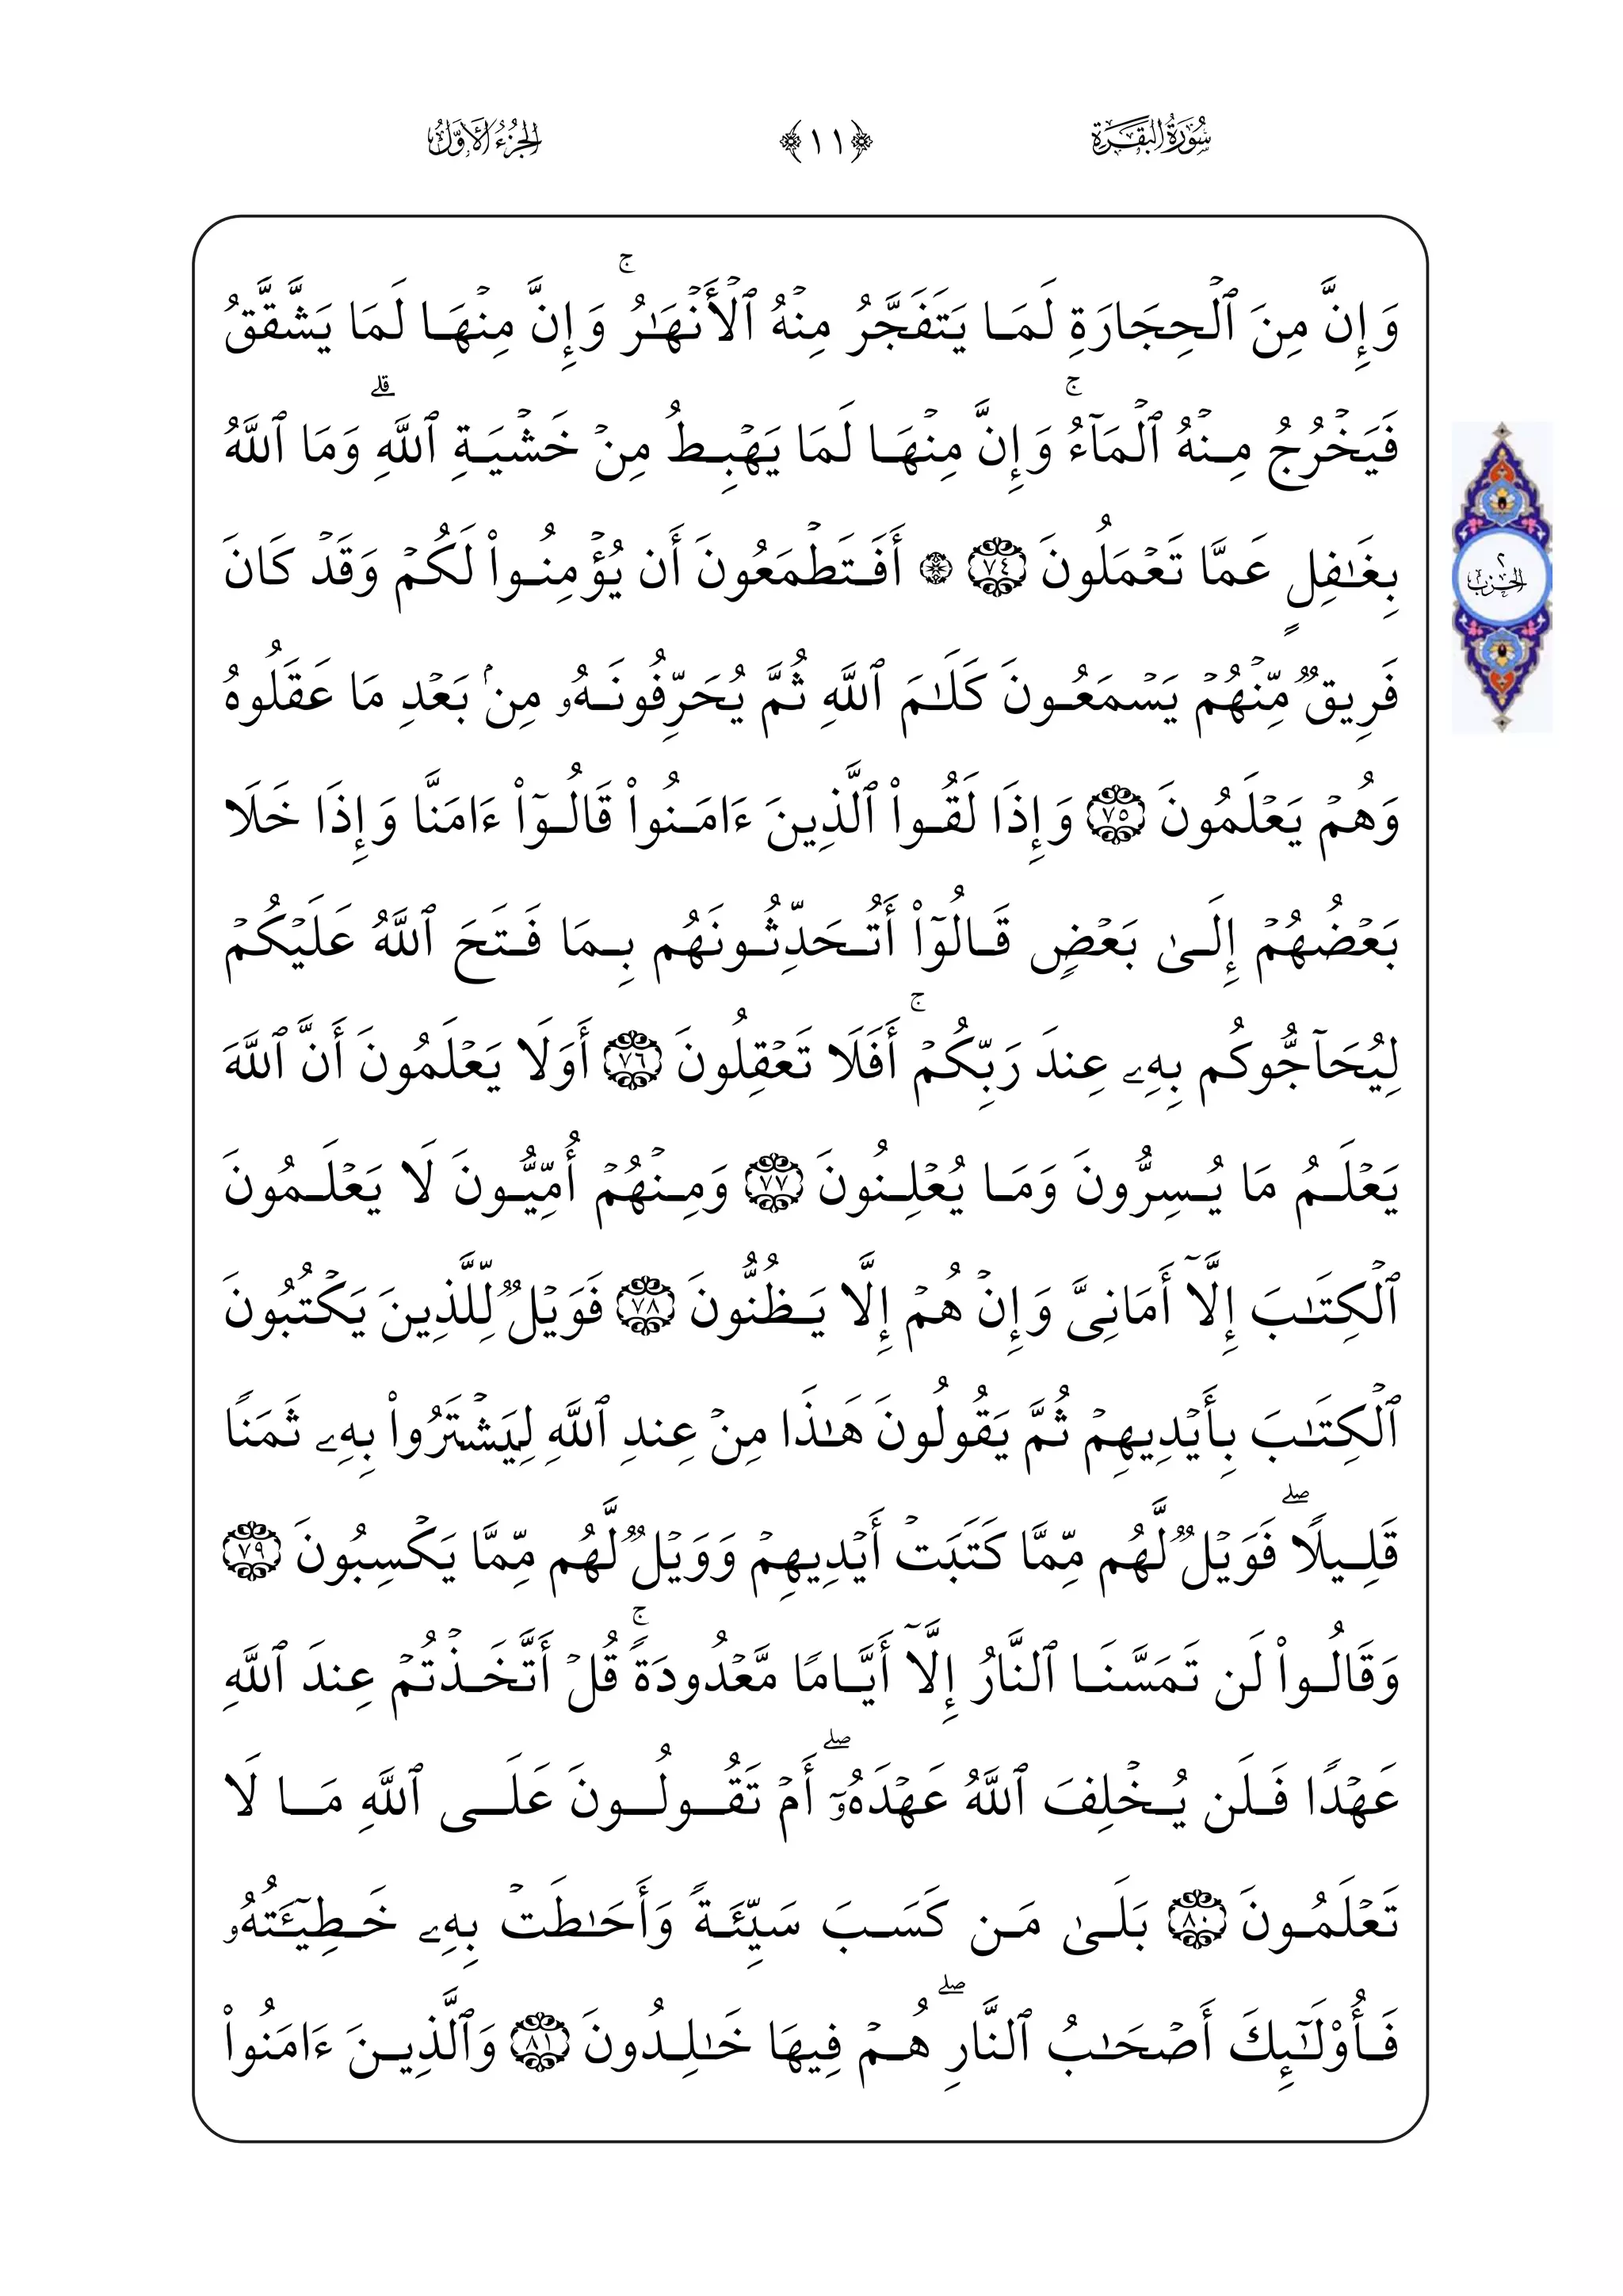 سُورَةُ البَقَرَةِ ﴿١١﴾ الجُزْءُ الأَوَّلُ
وَإِنَّ مِنَ ٱلۡحِجَارَةِ لَمَا يَتَفَجَّرُ مِنۡهُ ٱلۡأَنۡهَٰرُۚ وَإِنَّ مِنۡهَا لَمَا يَشَّقَّقُ
فَيَخۡرُجُ مِنۡهُ ٱلۡمَآءُۚ وَإِنَّ مِنۡهَا لَمَا يَهۡبِطُ مِنۡ خَشۡيَةِ ٱللَّهِۗ وَمَا ٱللَّهُ
بِغَٰفِلٍ عَمَّا تَعۡمَلُونَ ٧٤ ۞ أَفَتَطۡمَعُونَ أَن يُؤۡمِنُواْ لَكُمۡ وَقَدۡ كَانَ
فَرِيقٞ مِّنۡهُمۡ يَسۡمَعُونَ كَلَٰمَ ٱللَّهِ ثُمَّ يُحَرِّفُونَهُۥ مِنۢ بَعۡدِ مَا عَقَلُوهُ
وَهُمۡ يَعۡلَمُونَ ٧٥ وَإِذَا لَقُواْ ٱلَّذِينَ ءَامَنُواْ قَالُوٓاْ ءَامَنَّا وَإِذَا خَلَا
بَعۡضُهُمۡ إِلَىٰ بَعۡضٖ قَالُوٓاْ أَتُحَدِّثُونَهُم بِمَا فَتَحَ ٱللَّهُ عَلَيۡكُمۡ
لِيُحَآجُّوكُم بِهِۦ عِندَ رَبِّكُمۡۚ أَفَلَا تَعۡقِلُونَ ٧٦ أَوَلَا يَعۡلَمُونَ أَنَّ ٱللَّهَ
يَعۡلَمُ مَا يُسِرُّونَ وَمَا يُعۡلِنُونَ ٧٧ وَمِنۡهُمۡ أُمِّيُّونَ لَا يَعۡلَمُونَ
ٱلۡكِتَٰبَ إِلَّآ أَمَانِيَّ وَإِنۡ هُمۡ إِلَّا يَظُنُّونَ ٧٨ فَوَيۡلٞ لِّلَّذِينَ يَكۡتُبُونَ
ٱلۡكِتَٰبَ بِأَيۡدِيهِمۡ ثُمَّ يَقُولُونَ هَٰذَا مِنۡ عِندِ ٱللَّهِ لِيَشۡتَرُواْ بِهِۦ ثَمَنٗا
قَلِيلٗاۖ فَوَيۡلٞ لَّهُم مِّمَّا كَتَبَتۡ أَيۡدِيهِمۡ وَوَيۡلٞ لَّهُم مِّمَّا يَكۡسِبُونَ ٧٩
وَقَالُواْ لَن تَمَسَّنَا ٱلنَّارُ إِلَّآ أَيَّامٗا مَّعۡدُودَةٗۚ قُلۡ أَتَّخَذۡتُمۡ عِندَ ٱللَّهِ
عَهۡدٗا فَلَن يُخۡلِفَ ٱللَّهُ عَهۡدَهُۥٓۖ أَمۡ تَقُولُونَ عَلَى ٱللَّهِ مَا لَا
تَعۡلَمُونَ ٨٠ بَلَىٰ مَن كَسَبَ سَيِّئَةٗ وَأَحَٰطَتۡ بِهِۦ خَطِيٓـَٔتُهُۥ
فَأُوْلَٰٓئِكَ أَصۡحَٰبُ ٱلنَّارِۖ هُمۡ فِيهَا خَٰلِدُونَ ٨١ وَٱلَّذِينَ ءَامَنُواْ
٢
الحزب